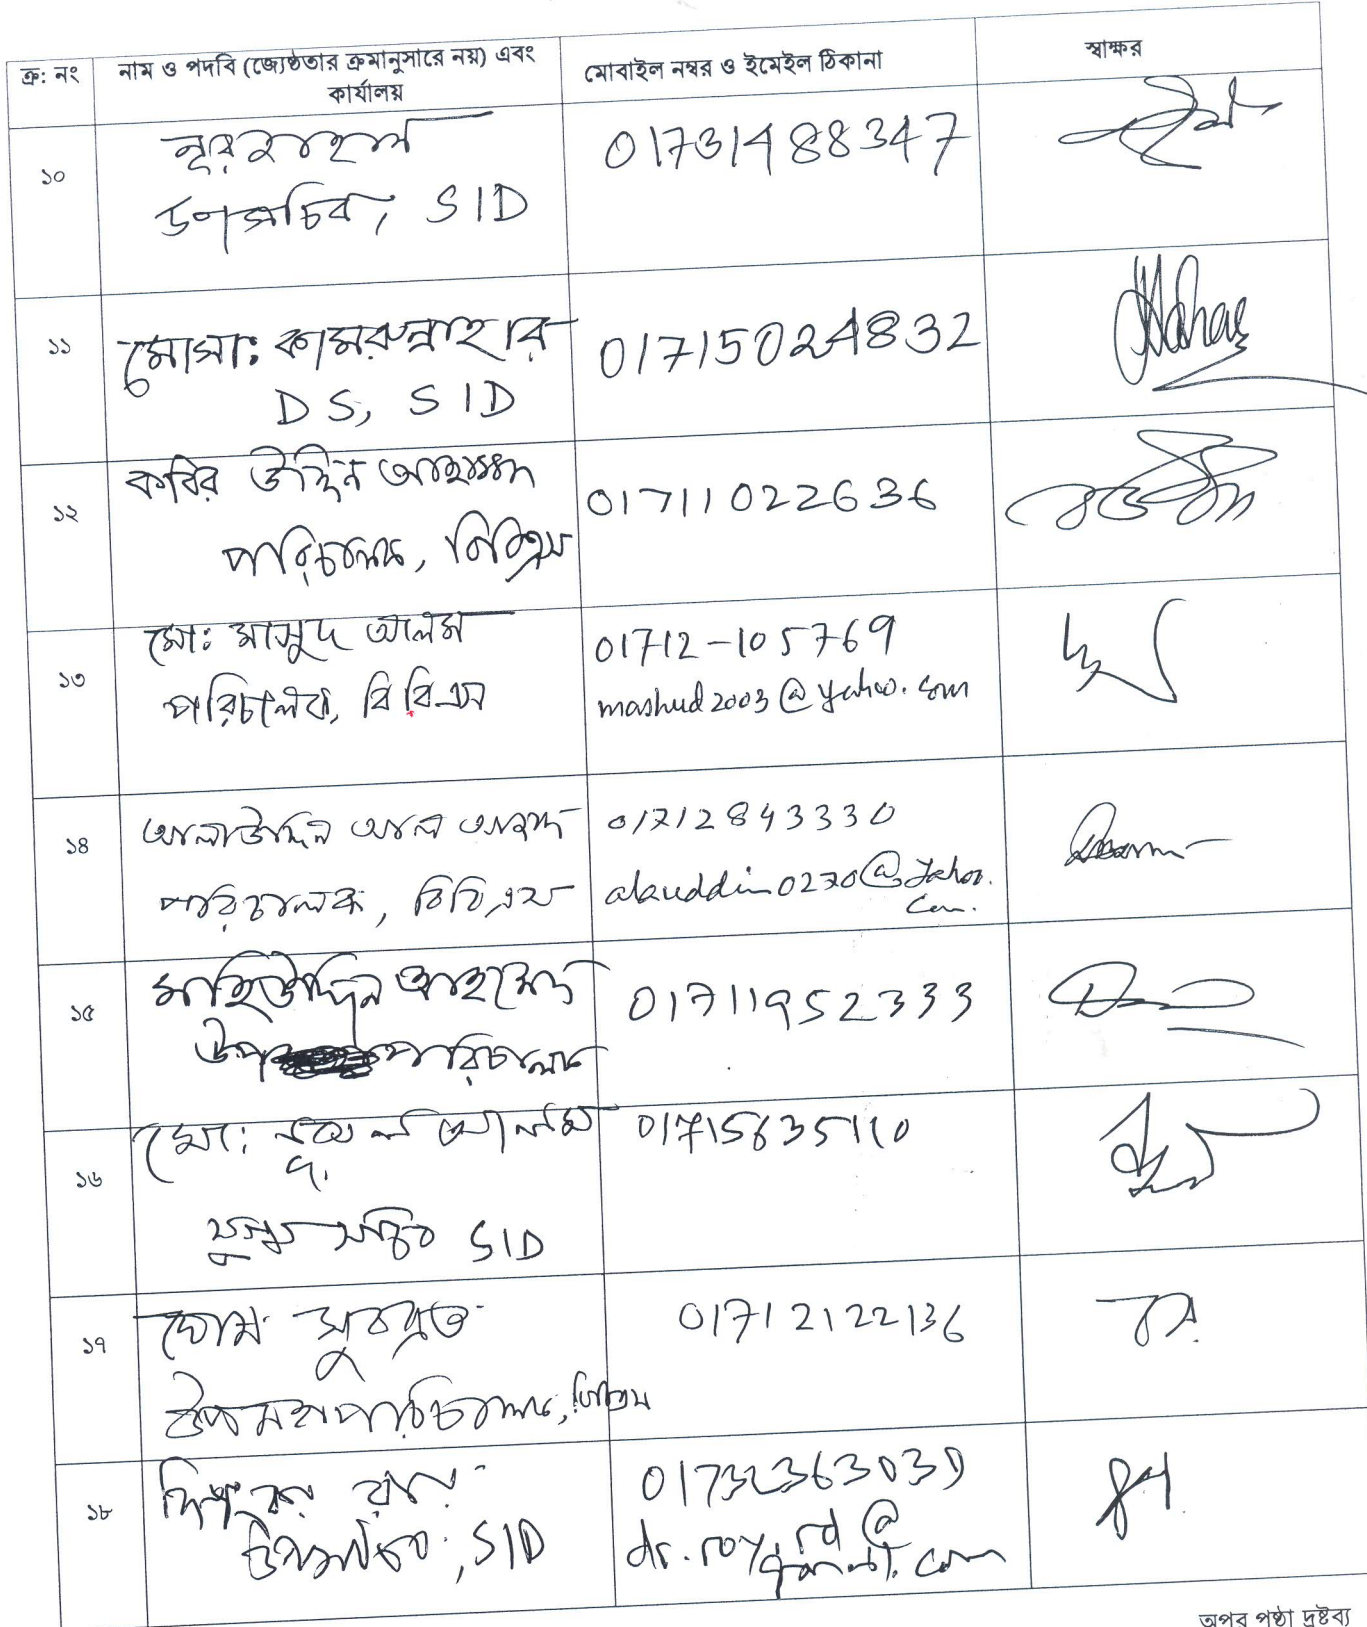 ক্র: নং
নাম ও পদবি (জ্যেষ্ঠতার ক্রমানুসারে নয়) এবং
কার্যালয়
মোবাইল নম্বর ও ইমেইল ঠিকানা
স্বাক্ষর
১০
উপসচিব, SID
01731488347
১১
মোসা: কামরুন্নাহার
DS, SID
01715024832
১২
কবির উদ্দিন আহাম্মদ
পরিচালক, বিবিএস
01711022636
১৩
মো: মাসুদ আলম
পরিচালক, বিবিএস
01712-105769
mashud2003@yahoo.com
১৪
আলাউদ্দিন আল আজাদ
পরিচালক, বিবিএস
01712843330
alauddin0270@yahoo.
com.
১৫
মহিউদ্দিন আহমেদ
উপপরিচালক
01711952333
১৬
মো: আলম
যুগ্ম সচিব SID
01715635110
১৭
ঘোষ সুবব্রত
উপমহাপরিচালক, বিবিএস
01712122136
১৮
দিপংকর রায়
উপসচিব, SID
01732363039
dr.roy.rd@
gmail.com
অপর পৃষ্ঠা দ্রষ্টব্য